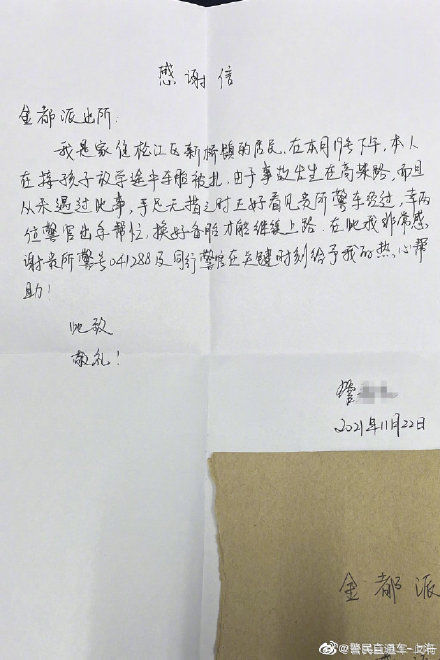 感谢信
金都派出所:
我是家住松江区新桥镇的居民,在本月19号下午,本人
在接孩子放学途中车胎被扎,由于事故出生在高架路,而且
从未遇过此事,手足无措之时正好看见贵所警车经过,幸两
位警官出手帮忙,换好备胎才能继续上路。在此我非常感
谢贵所警号041288及同行警官在关键时刻给予我的热心帮
助!
此致
敬礼!
2021年11月22日
金都派
@警民直通车-上海